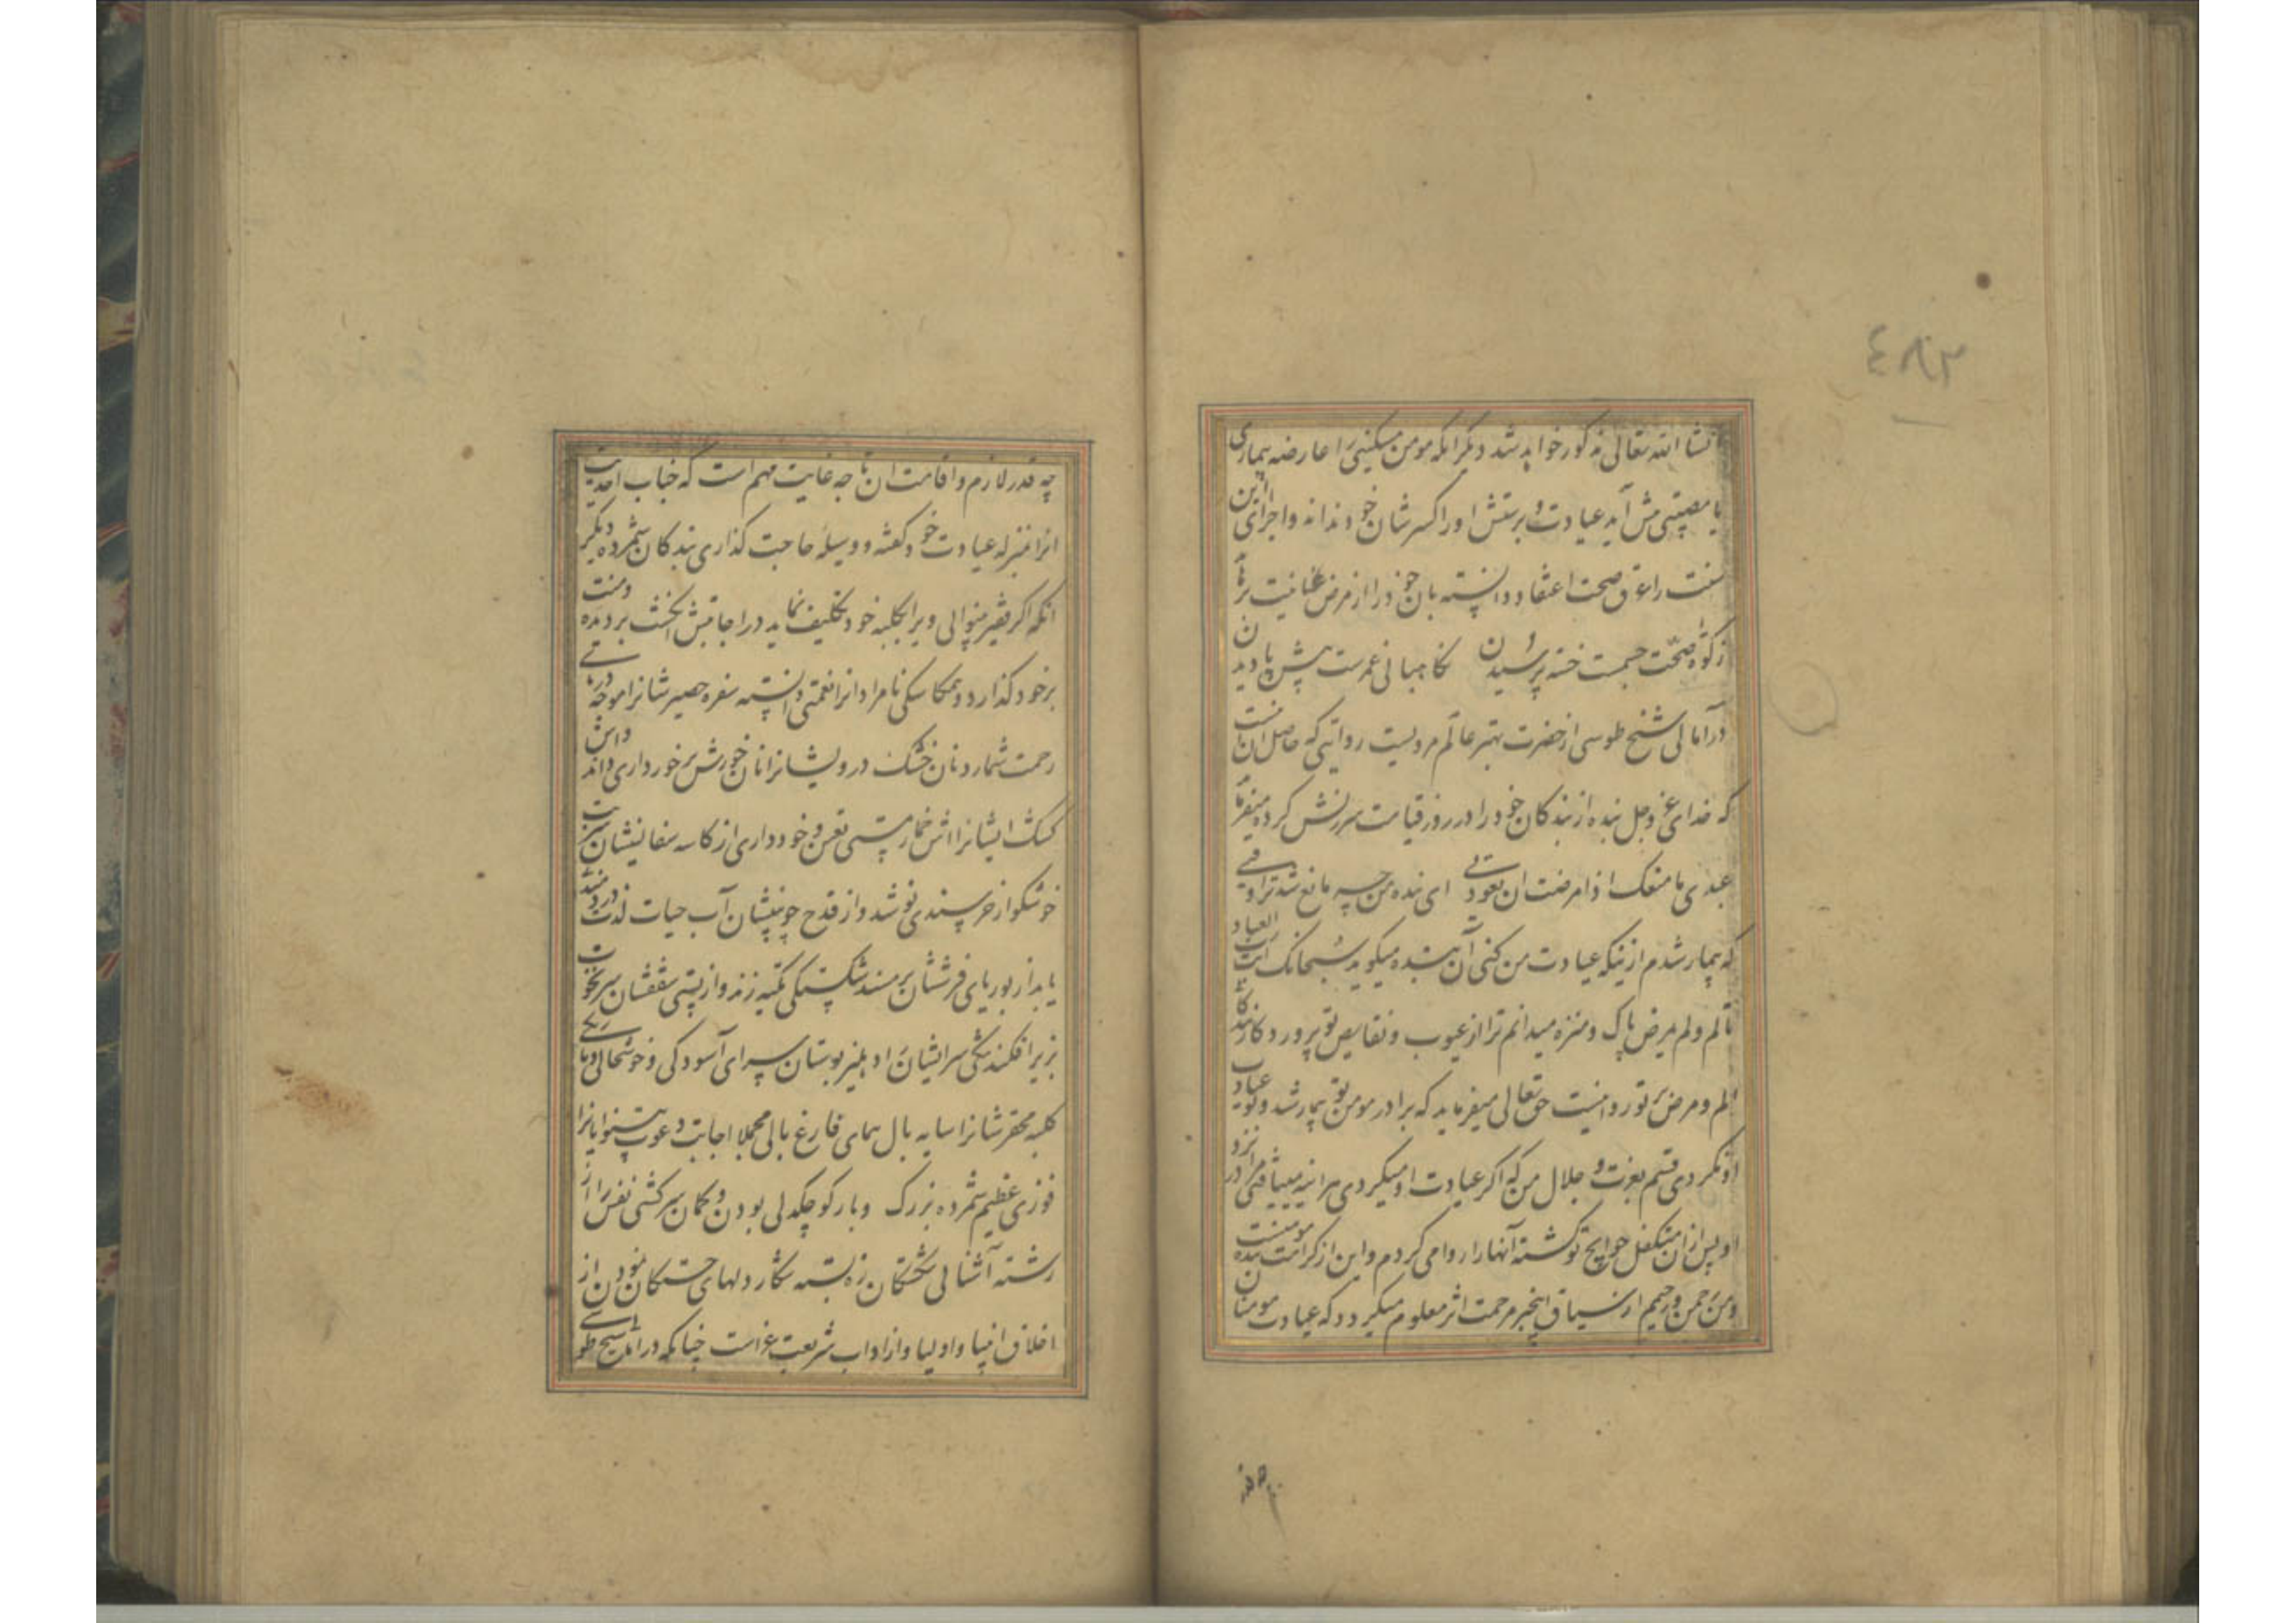 ٤٨٣
انشا الله تعالی مذکور خواهد شد دیگر انکه مومن مسکینی را عارضه بیماری
یا مصیبتی پیش آید عیادت و پرسش او را کسر شان خود نداند و اجرای این
سنت را عرق صحت اعتقاد دانسته بان خود را از مرض غنانیت برهاند
زکوة صحت جسمت خسته پرسیدن نکاهبانی عمرست پیش پا دیدن
در آمالی شیخ طوسی از حضرت بهتر عالم مرویست روایتی که حاصل ان انست
که خدای عز و جل بنده از بندکان خود را در روز قیامت سرزنش کرده میفرماید
عبدی ما منعک اذا مرضت ان تعودنی ای بنده من چه مانع شد ترا وقتی
که بیمار شدم از نیکه عیادت من کنی آن بنده میکوید سبحانک انت رب العباد
لا تالم و لا تمرض پاک و منزه میدانم ترا از عیوب و نقایص تو پرورد کار بندکانی
الم و مرض بر تو روا نیست حق تعالی میفرماید که برادر مومن تو بیمار شد و تو عیادت
او نکردی قسم بعزت و جلال من که اکر عیادت او میکردی هر اینه میافتی مرا در نزد
او پس از ان متکفل حوایج تو کشته آنها را روا می کردم و این از کرامت بنده مومنست
و من رحمن و رحیم از سیاق اینخبر مرحمت اثر معلوم میکردد که عیادت مومنان
چه قدر لازم و اقامت ان تا چه غایت مهم است که جناب احدیت
انرا بمنزله عیادت خود کفته و وسیله حاجت کذاری بندکان شمرده دیکر
انکه اکر فقیر بینوایی ویرا بکلبه خود تکلیف نماید در اجابتش انکشت بر دیده و منت
بر خود کذارد و همکاسکی نامرادانرا نعمتی دانسته سفره حصیرشانرا موجه دریای
رحمت شمارد و نان خشک درویشانرا نان خورش برخورداری داند و اش
کشک ایشانرا اش خمار مستی تعین و خودداری از کاسه سفالینشان شربت
خوشکوار خرسندی نوشد و از قدح چوبینشان آب حیات لذت
یابد از بوریای فرششان بر مسند شکستکی تکیه زند و از پستی سقفشان سر نخوت
بزیر افکند تنکی سرایشانرا دهلیز بوستان سرای آسودکی و خوشحالی و
کلبه محقرشانرا سایه بال همای فارغ بالی مجملا اجابت دعوت بینوایانرا
فوزی عظیم شمرده بزرک و بار کوچکدلی بودن و کمان سرکشی نفس را از
رشته آشنایی شکستکان زه بسته شکار دلهای خستکان نمودن از
اخلاق انبیا و اولیا و از اداب شریعت غراست چنانکه در امالی شیخ طوسی